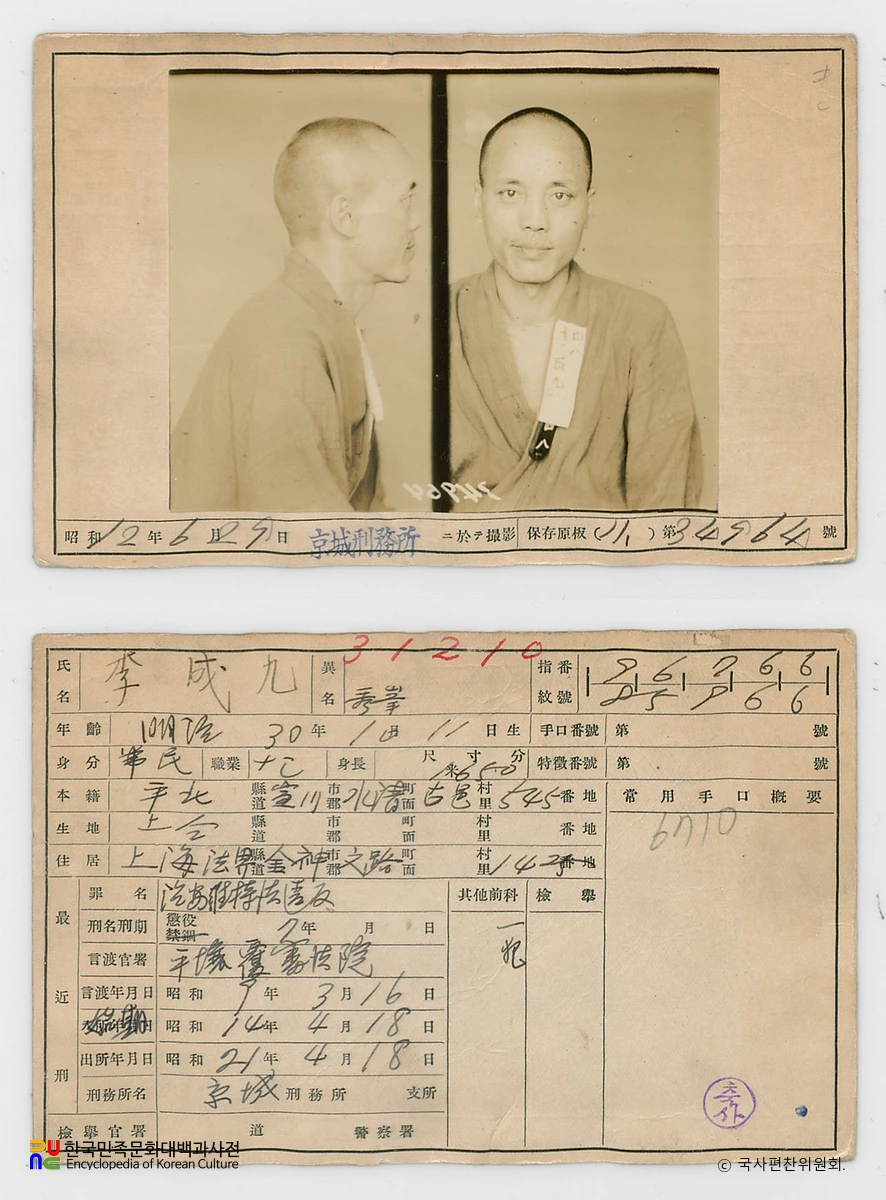 昭和12年6月29日 京城刑務所 ニ於テ撮影 保存原板(11.)第34964號
31210
氏名 李成九 異名 指紋番號
年齡 明治30年 月11日生 手口番號 第 號
身分 常民 職業 身長 尺寸分 特徵番號 第 號
本籍 平北 縣道 宣川 市郡 水淸 町面 古邑 村里 545番地 常用手口槪要
6710
生地 上仝 縣道 市郡 町面 村里 番地
住居 上海法界金神父路 縣道 市郡 町面 村里 142 番地
最近刑
罪名 治安維持法違反 其他前科 檢擧
刑名刑期 懲役 禁錮 7年 月 日 一犯
言渡官署 平壤覆審法院
言渡年月日 昭和9年3月16日
始期 昭和14年4月18日
出所年月日 昭和21年4月18日
刑務所名 京城刑務所 支所
檢擧官署 道 警察署
축사
한국민족문화대백과사전
Encyclopedia of Korean Culture
© 국사편찬위원회.